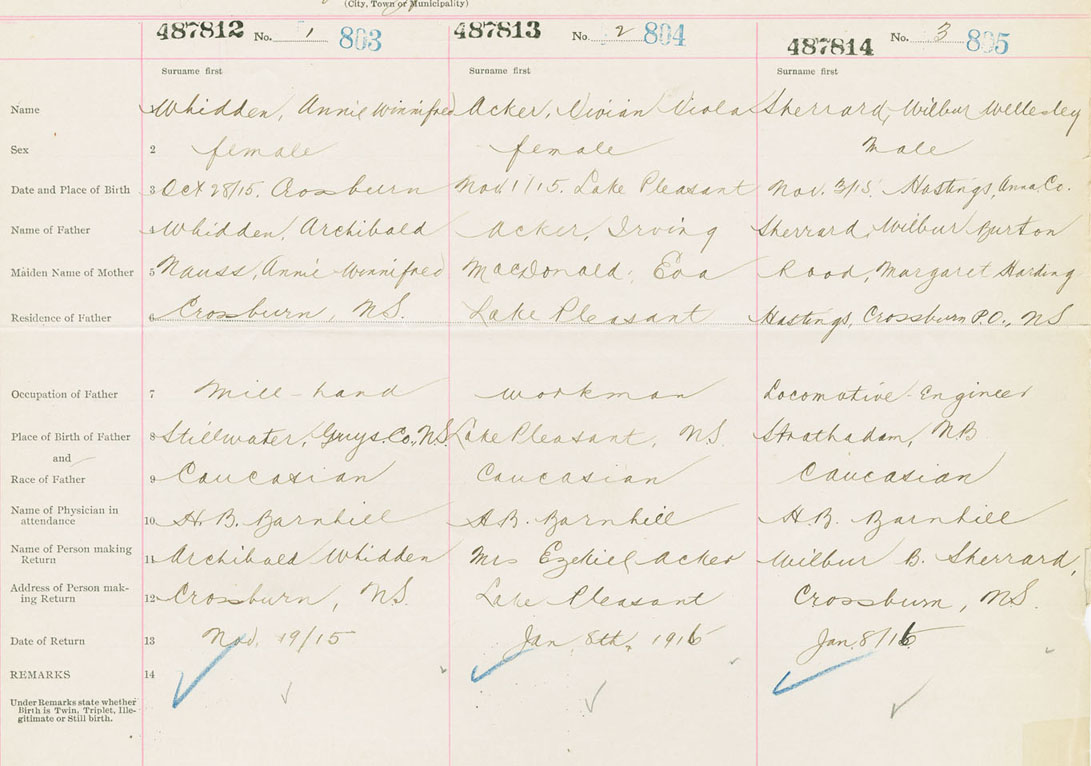 (City, Town or Municipality)
487812 No. 1 803 487813 No. 2 804 487814 No. 3 805
Surname first Surname first Surname first
Name 1 Whidden, Annie Winnifred Acker, Vivian Viola Sherrard, Wilbur Wellesley
Sex 2 female female Male
Date and Place of Birth 3 Oct 28/15. Crossburn Nov. 1/15. Lake Pleasant Nov. 3/15 Hastings, Anna. Co.
Name of Father 4 Whidden, Archibald Acker, Irving Sherrard, Wilbur Burton
Maiden Name of Mother 5 Nauss, Annie Winnifred MacDonald, Eva Rood, Margaret Harding
Residence of Father 6 Crossburn, NS. Lake Pleasant Hastings, Crossburn P.O., NS
Occupation of Father 7 Mill-hand workman Locomotive Engineer
Place of Birth of Father 8 Stillwater, Guys. Co., N.S. Lake Pleasant, NS. Strathadam, NB
and
Race of Father 9 Caucasian Caucasian Caucasian
Name of Physician in
attendance 10 H. B. Barnhill H.B. Barnhill H.B. Barnhill
Name of Person making
Return 11 Archibald Whidden Mrs Ezekiel Acker Wilbur B. Sherrard,
Address of Person mak-
ing Return 12 Crossburn, NS. Lake Pleasant Crossburn, NS.
Date of Return 13 Nov. 19/15 Jan. 8th, 1916 Jan. 8/16
REMARKS 14
Under Remarks state whether
Birth is Twin, Triplet, Ille-
gitimate or Still birth.